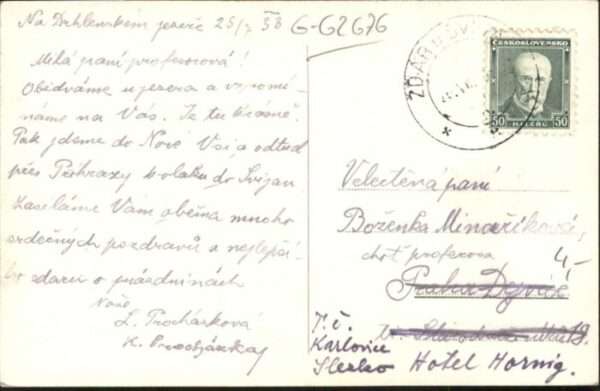 Na Drhlenském jezeře 25/7 33 G-G2676
Milá paní profesorová!
Obědváme u jezera a vzpomí-
náme na Vás. Je tu krásně.
Pak jdeme do Nové Vsi a odtud
přes Příhrazy k vlaku do Svijan
Zasíláme Vám oběma mnoho
srdečných pozdravů a nejlepší-
ho zdaru o prázdninách
Vaše
L. Procházková
K. Procházka
ČESKOSLOVENSKO
50 HALÉŘŮ 50
Velectěná paní
Boženka Minaříková,
choť profesora
4,-
Praha Dejvice
T. č.
Karlovice
Slezsko Hotel Hornig.